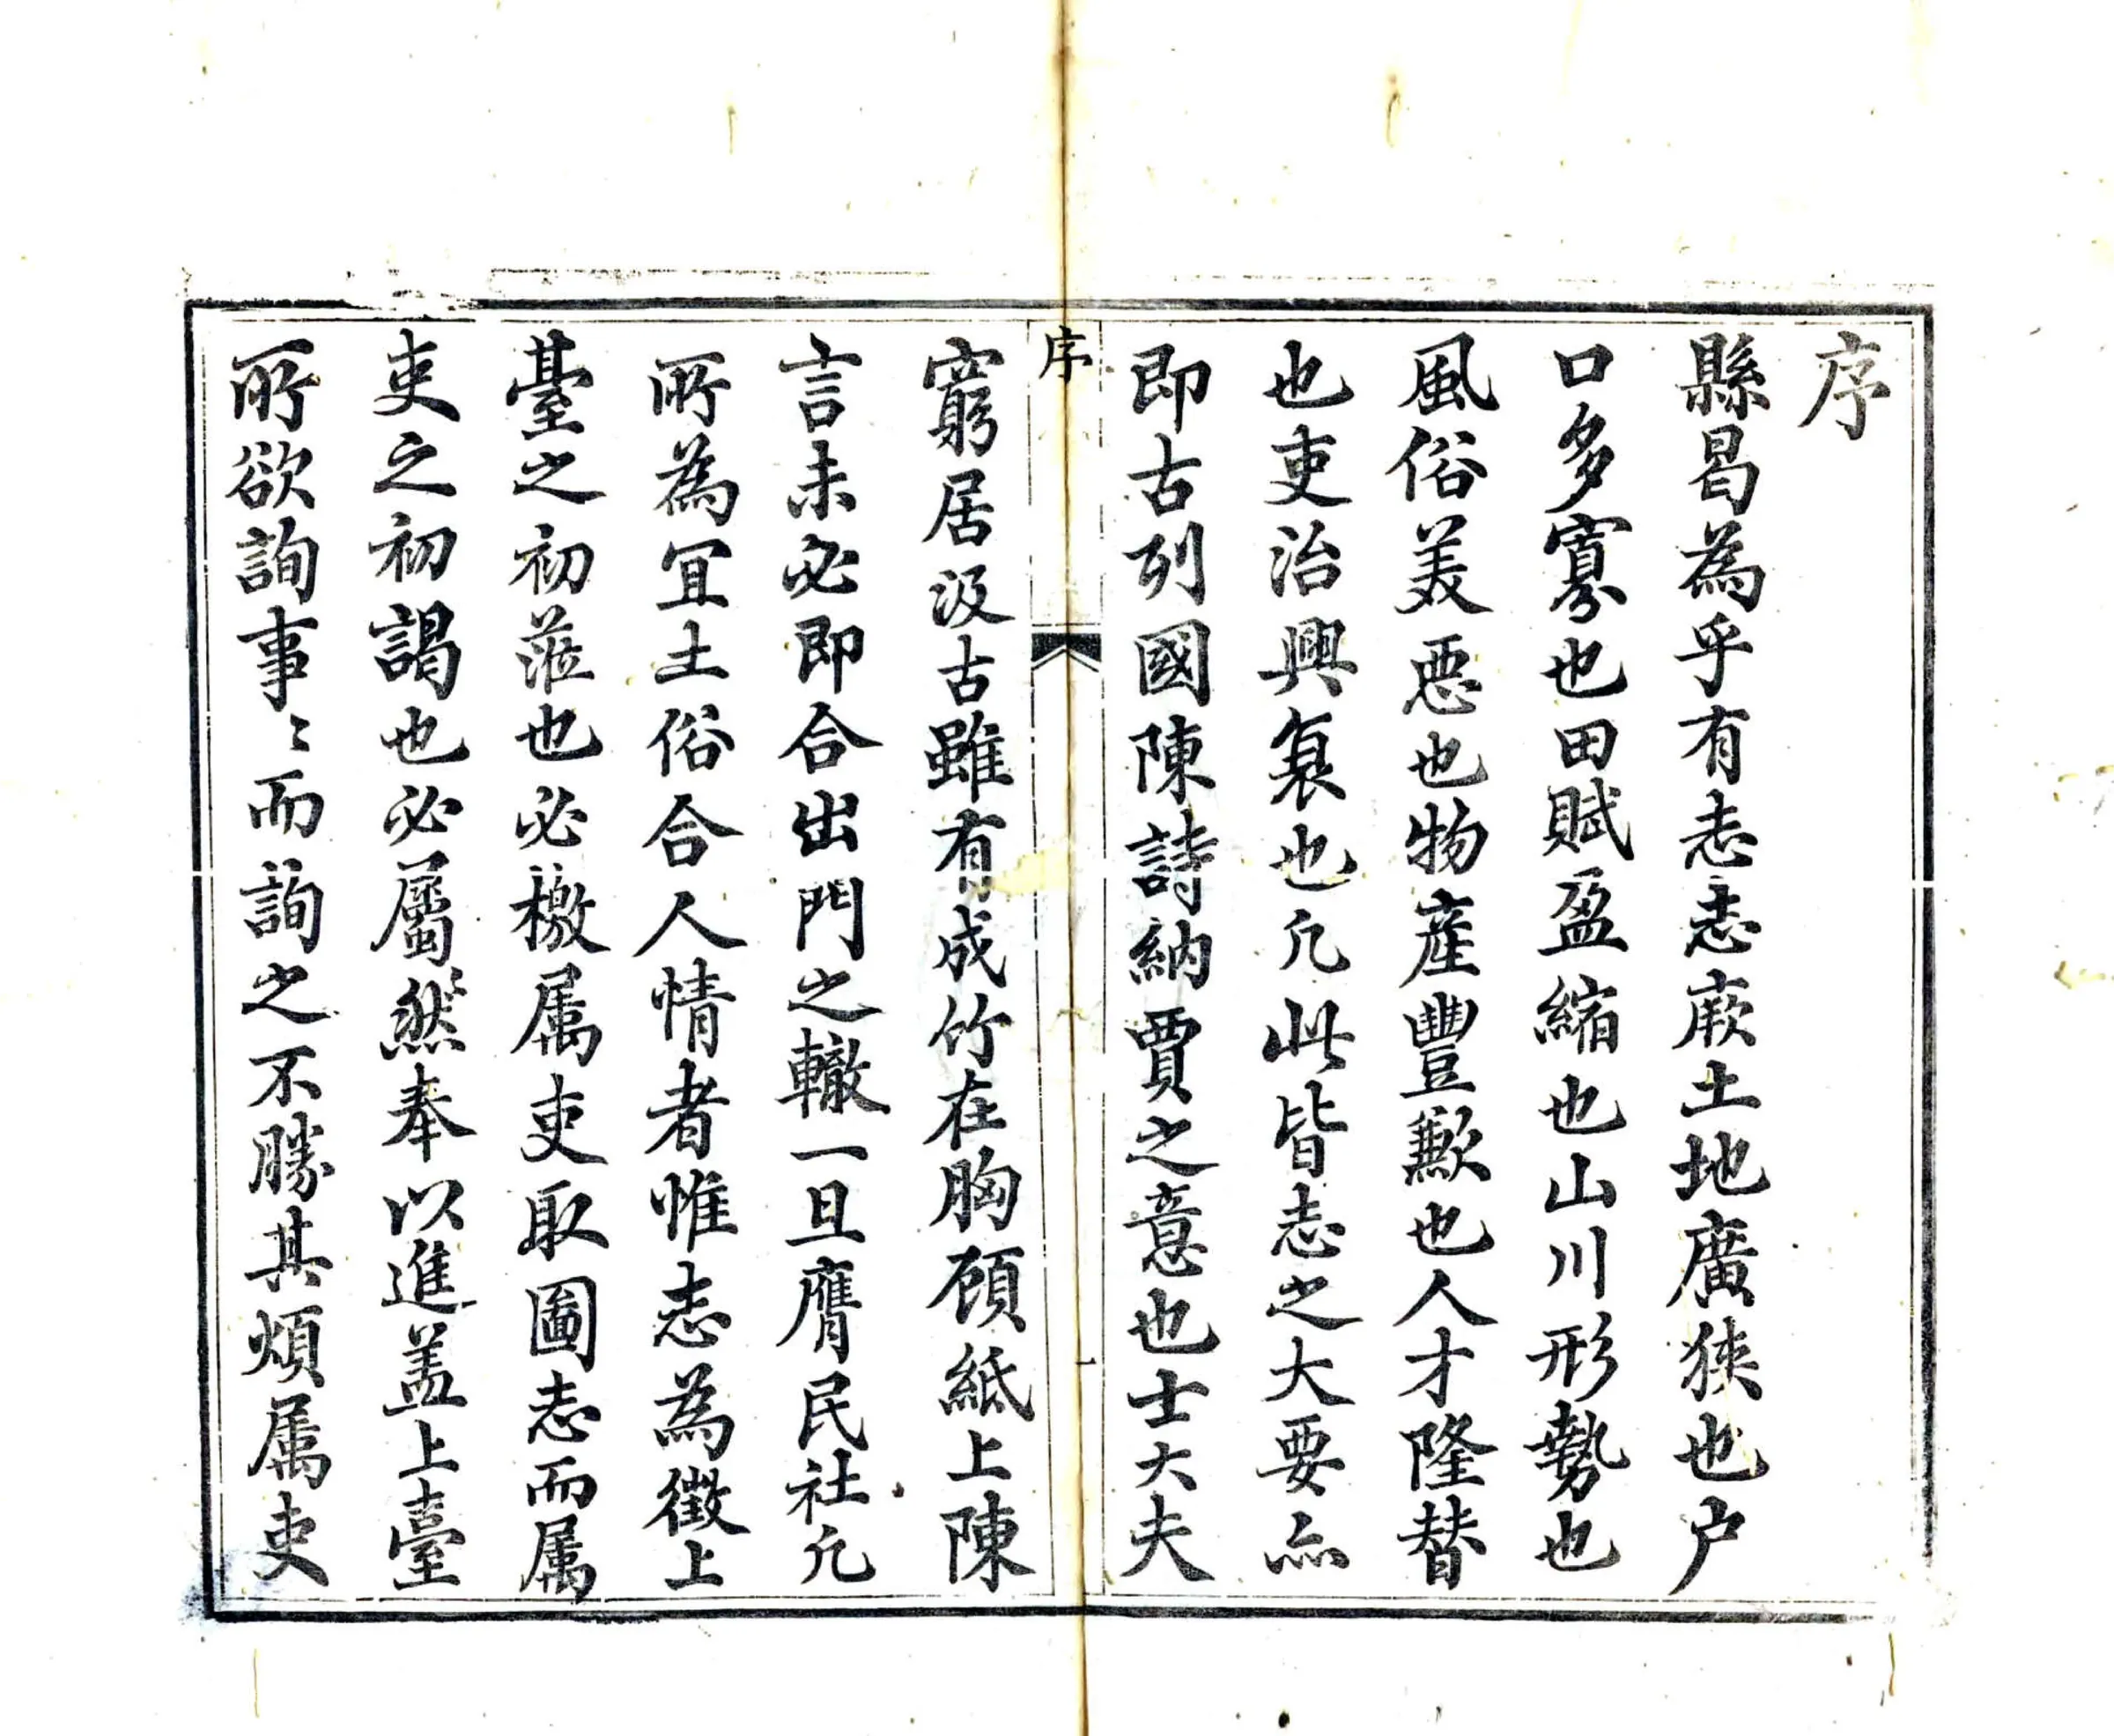 序
縣曷為乎有志志厥土地廣狹也户
口多寡也田賦盈縮也山川形勢也
風俗美惡也物產豐歉也人才隆替
也吏治興衰也凡此皆志之大要亦
即古列國陳詩納賈之意也士大夫
序
一
窮居汲古雖有成竹在胸顧紙上陳
言未必即合出門之轍一旦膺民社凡
所為冝土俗合人情者惟志為徵上
臺之初蒞也必檄属吏取圖志而属
吏之初謁也必屬〻然奉以進盖上臺
所欲詢事〻而詢之不勝其煩属吏